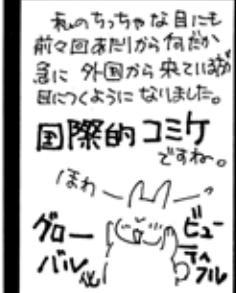 私のちっちゃな目にも
前々回あたりから何だか
急に外国から来ている方が
目につくようになりました。
国際的コミケ
ですね。
ほわ
グロー
バル化
ビュー
ラヘフル